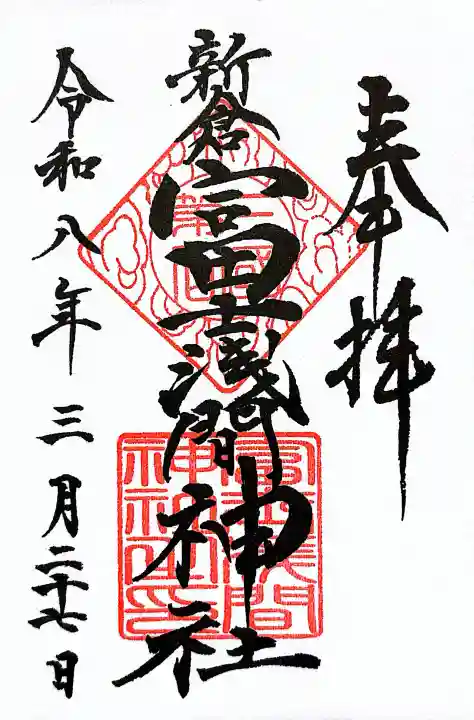 奉拝
新倉富士浅間神社
令和八年三月二十七日
冨士淺間
神社之印